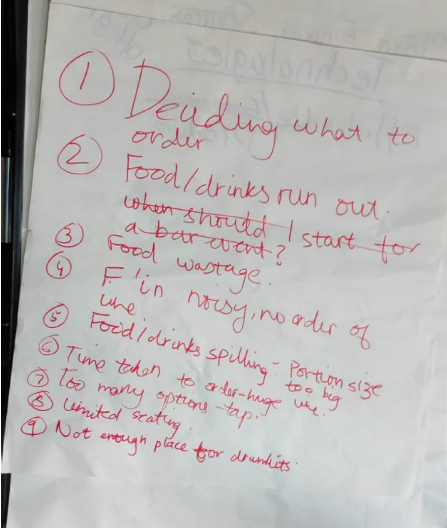 ① Deciding what to
order
② Food/drinks run out.
when should I start for
a bar event?
③ Food wastage.
④ F'in noisy, no order of
line
⑤ Food/drinks spilling - Portion size
too big
⑥ Time taken to order - huge line.
⑦ Too many options - tap.
⑧ Limited seating.
⑨ Not enough place for drunkits.
Technologies